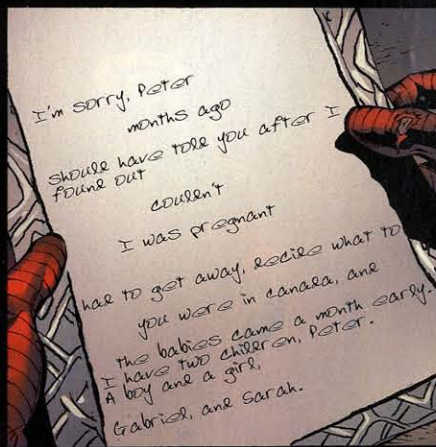 I'm sorry, Peter
months ago
should have told you after I
found out
couldn't
I was pregnant
had to get away, decide what to
you were in canada, and
the babies came a month early.
I have two children, Peter.
A boy and a girl,
Gabriel, and Sarah.